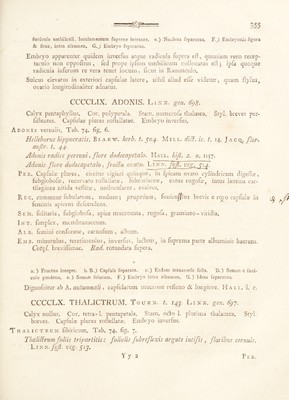 355
ftriſicule umbilicali, lumbamentum ſupremo interno. e.) Nucleus ſeparatus. F.) Embryonis figura
& ſitus, intra albumen. G.) Embryo ſeparatus.
Embryo apparenter quidem inverſus atque radicula ſupera eſt, quoniam vero recep-
taculo non oppoſitus, ſed prope ipſum umbilicum collocatus eſt; ipſa quoque
radicula inferum re vera tenet locum, ſicut in Ranunculo.
Sulcus elevatus in exteriori capſulae latere, nihil aliud eſſe videtur, quam ſtylus,
ovario longitudinaliter adnatus.
CCCCLIX. ADONIS. LINN. gen. 698.
Calyx pentaphyllus. Cor. polypetala. Stam. numeroſa thalamica. Styl. breves per-
ſiſtentes. Capſulae plures roſtellatae. Embryo inverſus.
ADONIS vernalis, Tab. 74. fig. 6.
Helleborus hippocraticis. BLACKW. herb. t. 504. MILL. dict. ic. t. 14. JACQ. flor.
auſtr. t. 44.
Adonis radice perenni, flore dodecapetalo. HALL. hiſt. 2. n. 1157.
Adonis flore dodecapetalo, fructu ovato. LINN. ſyſt. veg. 514.
PER. Capſulae plures, circiter viginti quinque, in ſpicam ovato cylindricam digeſtae,
ſubgloboſae, recurvato roſtellatae, ſubcoſtatae, extus rugoſae, intus lamina car-
tilaginea nitida veſtitae, uniloculares, evalves.
REC. commune ſubulatum, nudum; proprium, funiculus brevis e rugo capſulae in
ſeminis apicem deſcendens.
SEM. ſolitaria, ſubgloboſa, apice mucronata, rugoſa, gramineo-viridia.
INT. ſimplex, membranaceum.
ALB. ſemini conforme, carnoſum, album.
EMB. minutulus, teretiuſculus, inverſus, lacteus, in ſuprema parte albuminis haerens.
Cotyl. breviſſimae. Rad. rotundata ſupera.
a.) Fructus integer. b. B.) Capſula ſeparata. c.) Eadem transverſe ſecta. D.) Semen e funi-
culo pendens. e.) Semen ſolutum. F.) Embryo intra albumen. G.) Idem ſeparatus.
Dignoſcitur ab A. autumnali, capſularum mucrone reflexo & longiore. HALL. l. c.
CCCCLX. THALICTRUM. TOURN. t. 143. LINN. gen. 697.
Calyx nullus. Cor. tetra- l. pentapetala. Stam. octo l. plurima thalamica. Styl.
breves. Capſulae plures roſtellatae. Embryo inverſus.
THALICTRUM ſibiricum, Tab. 74. fig. 7.
Thalictrum foliis tripartitis: foliolis ſubreflexis argute inciſis, floribus cernuis.
LINN. ſyſt. veg. 513.
Y y 2
PER.